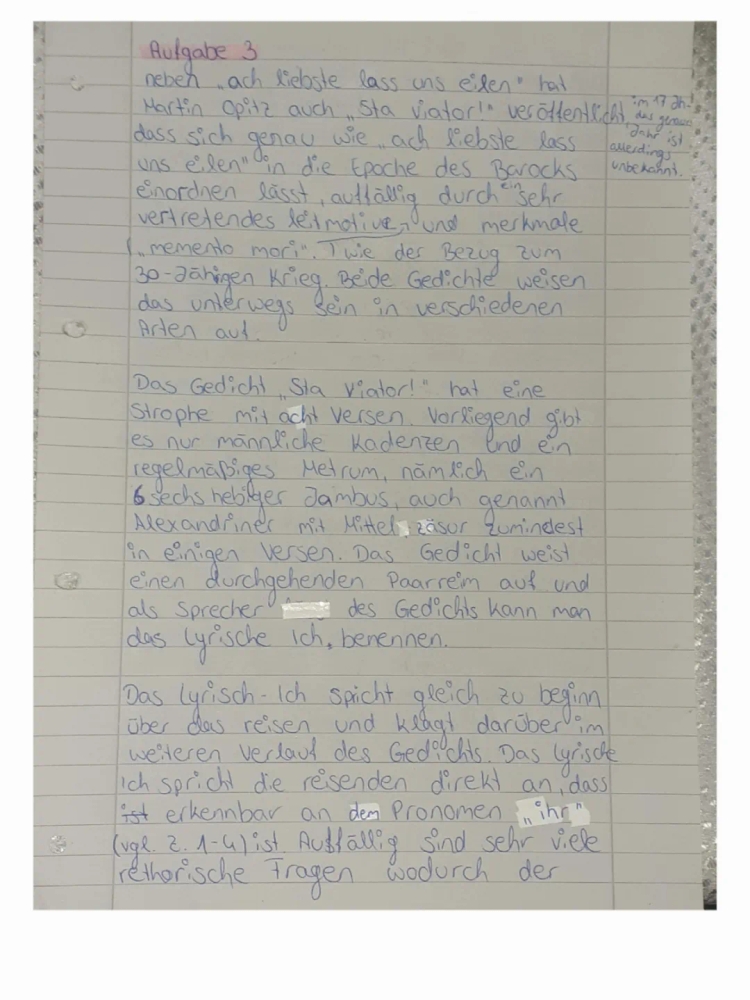 Aufgabe 3
neben „ach liebste lass uns eilen" hat
Martin Opitz auch „Sta Viator!" veröffentlicht,
im 17 Jh.
das genaue
Jahr ist
allerdings
unbekannt.
dass sich genau wie „ach liebste lass
uns eilen" in die Epoche des Barocks
einordnen lässt, auffällig durch ein sehr
vertretendes leitmotive, und merkmale
„memento mori". wie der Bezug zum
30-Jährigen Krieg. Beide Gedichte weisen
das unterwegs sein in verschiedenen
Arten auf.
Das Gedicht „Sta Viator!" hat eine
Strophe mit acht Versen. Vorliegend gibt
es nur männliche Kadenzen und ein
regelmäßiges Metrum, nämlich ein
6 sechshebiger Jambus, auch genannt
Alexandriner mit Mittel zäsur zumindest
in einigen Versen. Das Gedicht weist
einen durchgehenden Paarreim auf und
als Sprecher des Gedichts kann man
das lyrische Ich, benennen.
Das Lyrisch-Ich spicht gleich zu beginn
über das reisen und klagt darüber im
weiteren Verlauf des Gedichts. Das lyrische
Ich spricht die reisenden direkt an, dass
ist erkennbar an dem Pronomen „ihr"
(vgl. Z. 1-4) ist. Auffällig sind sehr viele
rethorische Fragen wodurch der